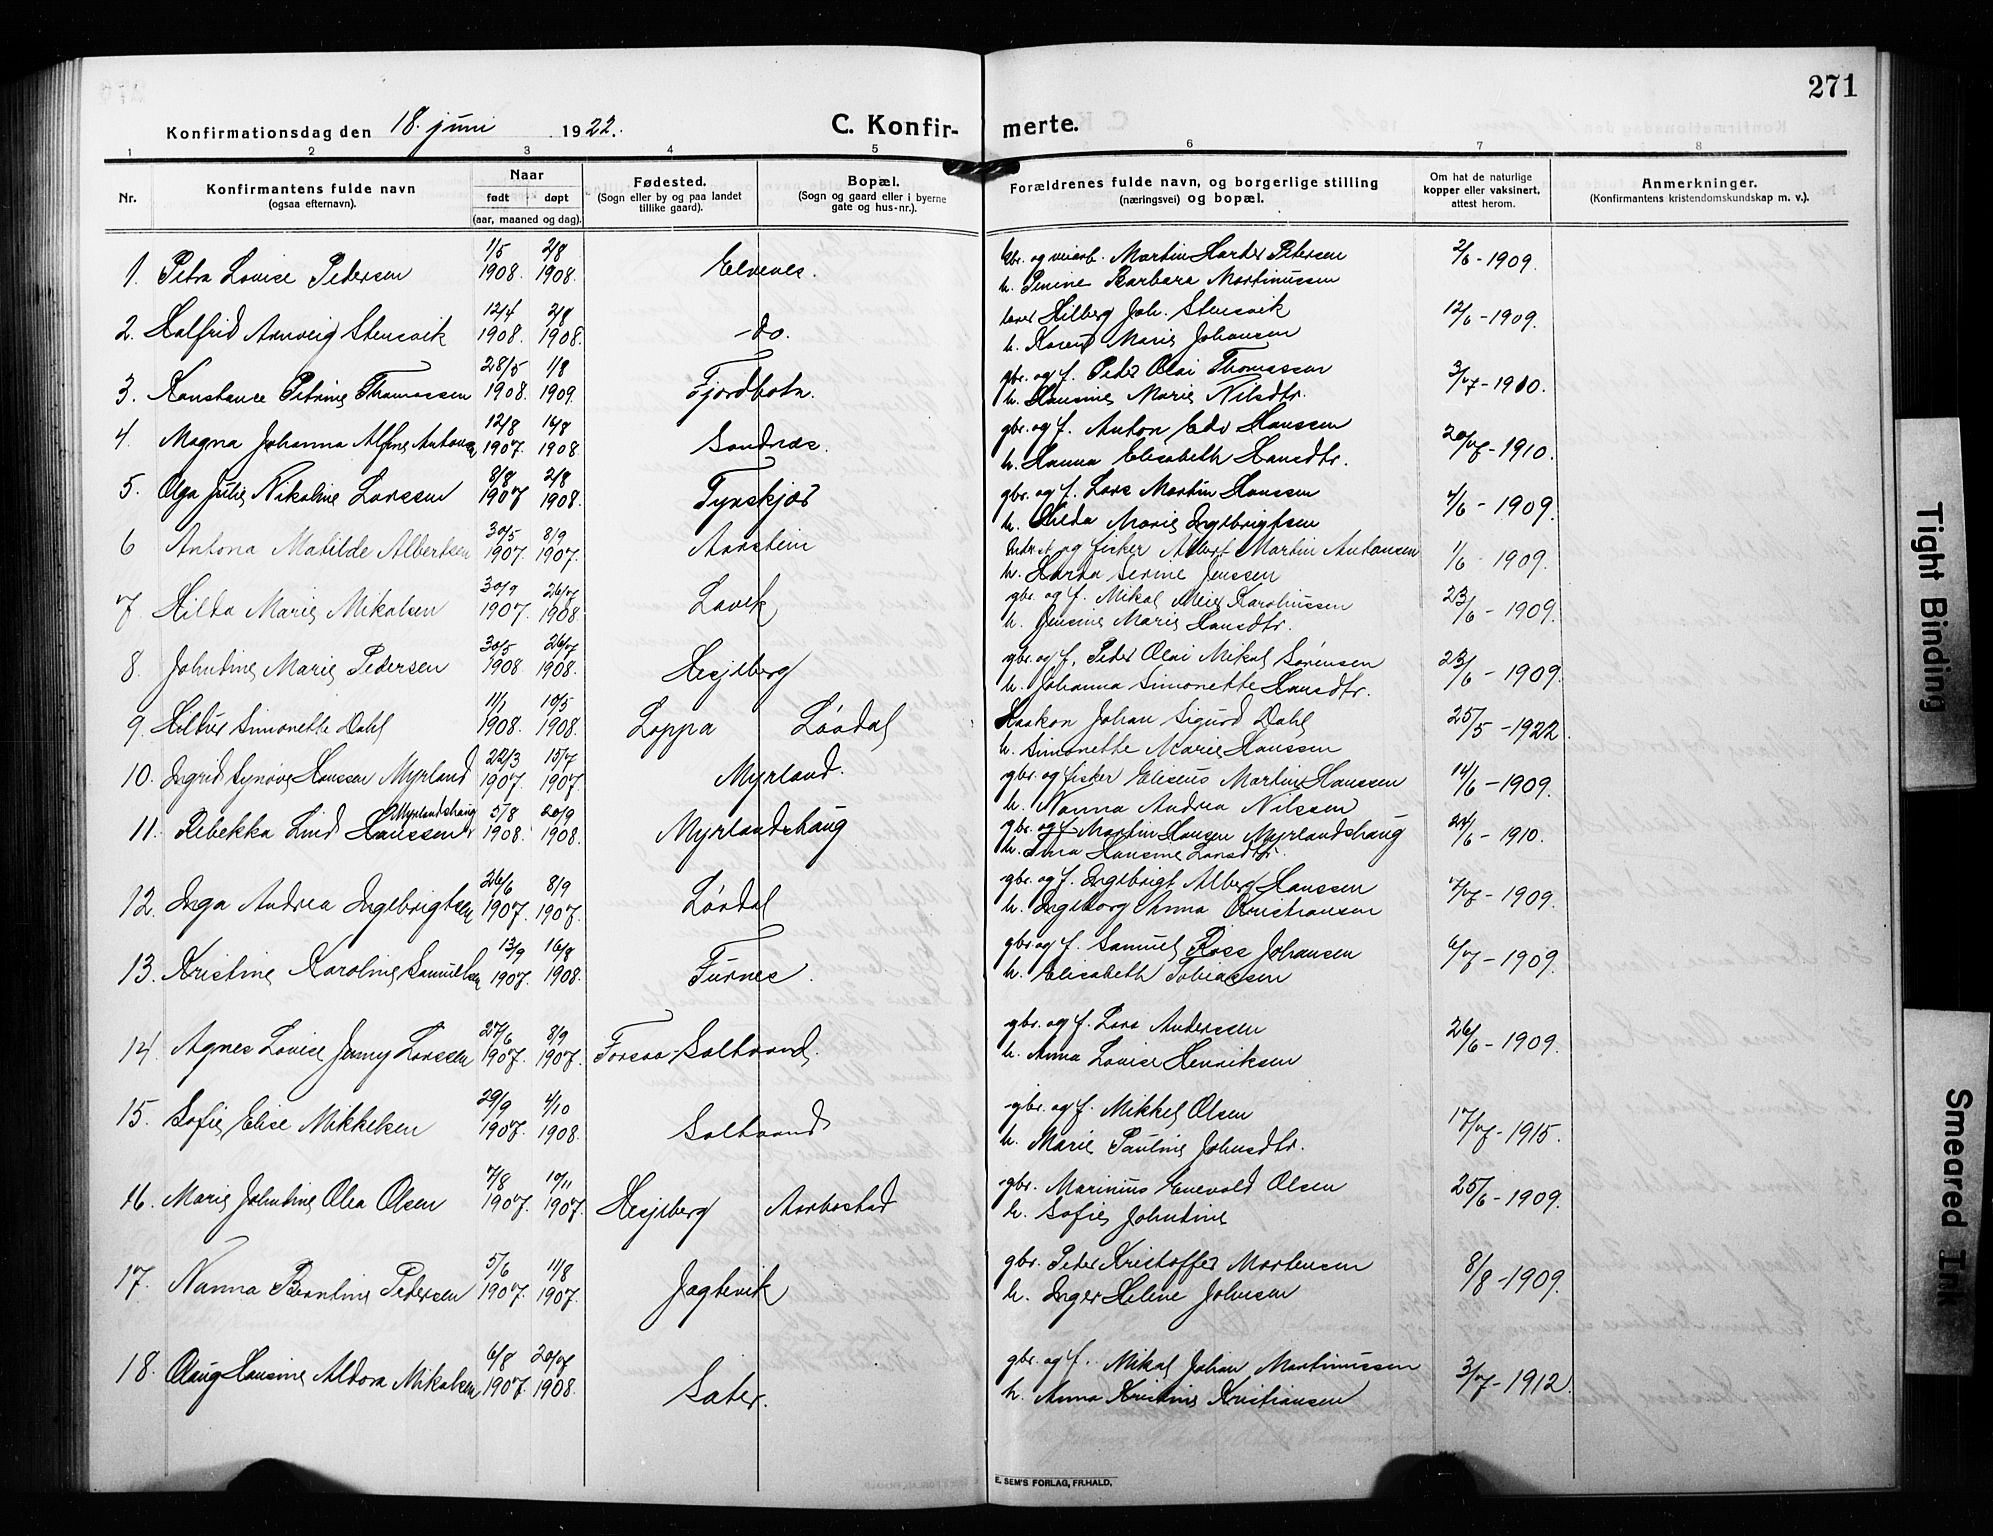 271
Konfirmationsdag den 18. juni 1922.
C. Konfirmerte.
1 2 3 4 5 6 7 8
Nr.
Konfirmantens fulde navn
(ogsaa efternavn).
Naar
født døpt
(aar, maaned og dag).
Fødested.
(Sogn eller by og paa landet
tillike gaard).
Bopæl.
(Sogn og gaard eller i byerne
gate og hus-nr.).
Forældrenes fulde navn, og borgerlige stilling
(næringsvei) og bopæl.
Om hat de naturlige
kopper eller vaksinert,
attest herom.
Anmerkninger.
(Konfirmantens kristendomskundskap m. v.).
1. Petra Lovise Pedersen 1/5 1908. 2/8 1908. Elvenes. Martin Petersen 2/6 - 1909.
h. Barbara Martinussen
2. Halfrid Arnveig Stensvik 12/4 1908. 2/8 1908. -do. Hilberg Joh. Stensvik 12/6 - 1909.
h. Karen Marie Johansen
3. Konstance Petrine Thomassen 28/5 1908. 1/8 1909. Fjordbotn. gbr. og f. Peder Olai Thomassen 3/7 - 1910.
h. Hansine Marie Nilsdtr.
4 Magna Johanna 12/8 1907. 16/8 1908 Sandnæs. gbr. og f. Anton Edv Hanssen 20/7 - 1910.
h. Hanna Elisabeth Hansdtr.
5. Olga Julie Nikoline Larssen 9/8 1907 2/8 1908. gbr. og f. Lars Martin Hanssen 4/6 - 1909.
h. Hilda Marie Ingebrigtsen
6 Antona Matilde Albertsen 30/5 1907. 8/9 1907. Aarstein og fisker Albert Martin Antonsen 1/6 - 1909.
h. Serine Jenssen
7 Hilda Marie Mikalsen 30/9 1907. 26/7 1908 Lavik gbr. og f. Mikal Meier Karoliussen 23/6 - 1909.
h. Jensine Marie Hansdtr.
8. Johntine Marie Pedersen 30/5 1908 26/7 1908. Hesjeberg gbr. og f. Peder Olai Mikal Sørensen 23/6 - 1909.
h. Johanna Simonette Hansdtr.
9. Simonette Dahl 11/1 1908. 10/5 1908. Loppa Løvdal Haakon Johan Sigurd Dahl 25/5 - 1922.
h. Simonette Marie Hanssen
10. Ingrid Synøve Hanssen Myrland 22/3 1907. 15/7 1907. Myrland. gbr. og fisker Eliseus Martin Hanssen 14/6 - 1909.
h. Nanna Andrea Nilssen
11. Rebekka Lind Hanssen Myrlandshaug 5/8 1908. 20/9 1908. Myrlandshaug gbr. og f. Martin Hansen Myrlandshaug 24/6 - 1910.
h. Hansine Larsdtr.
12. Inga Andrea Ingebrigtsen 26/6 1907. 8/9 1907. Løvdal gbr. og f. Ingebrigt Alberg Hanssen 7/7 - 1909.
h. Ingeborg Anna Kristiansen
13. Kristine Karoline Samuelsen 13/9 1907. 16/8 1908. Furnes. gbr. og f. Samuel Ross Johansen 6/7 - 1909.
h. Elisabeth Tobiassen
14. Agnes Lovise Jenny Larssen 27/6 1907. 8/9 1907. Forsaa-Saltvand. gbr. og f. Lars Anderssen 26/6 - 1909.
h. Anna Lovise Henriksen
15. Sofie Elise Mikkelsen 29/9 1907. 4/10 1908. Saltvand gbr. og f. Mikkel Olsen 17/7 - 1915.
h. Marie Pauline Johnsdtr.
16. Marie Johntine Olea Olsen 7/8 1907. 10/11 1907. Hesjeberg Aarbostad gbr. Marinius Enevold Olsen 25/6 - 1909.
h. Sofie Johntine
17. Nanna Berntine Pedersen 5/6 1907. 11/8 1907. Jagtevik gbr. Peder Kristoffer Mortensen 8/8 - 1909.
h. Inger Helene Johnsen
18. Olaug Hansine Aldora Mikalsen 6/8 1907. 20/7 1908. Sæter. gbr. og f. Mikal Johan Martinussen 3/7 - 1912.
h. Anna Kristine Kristiansen
E. SEM'S FORLAG, FR.HALD.
Tight Binding
Smeared Ink